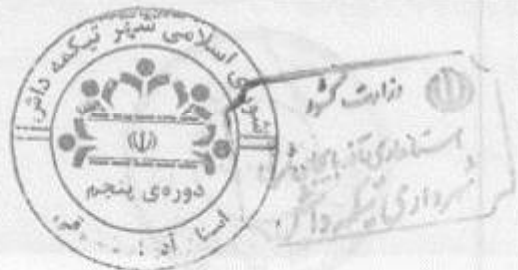 شورای اسلامی شهر تیکمه داش
دوره‌ی پنجم
وزارت کشور
استانداری آذربایجان شرقی
شهرداری تیکمه داش